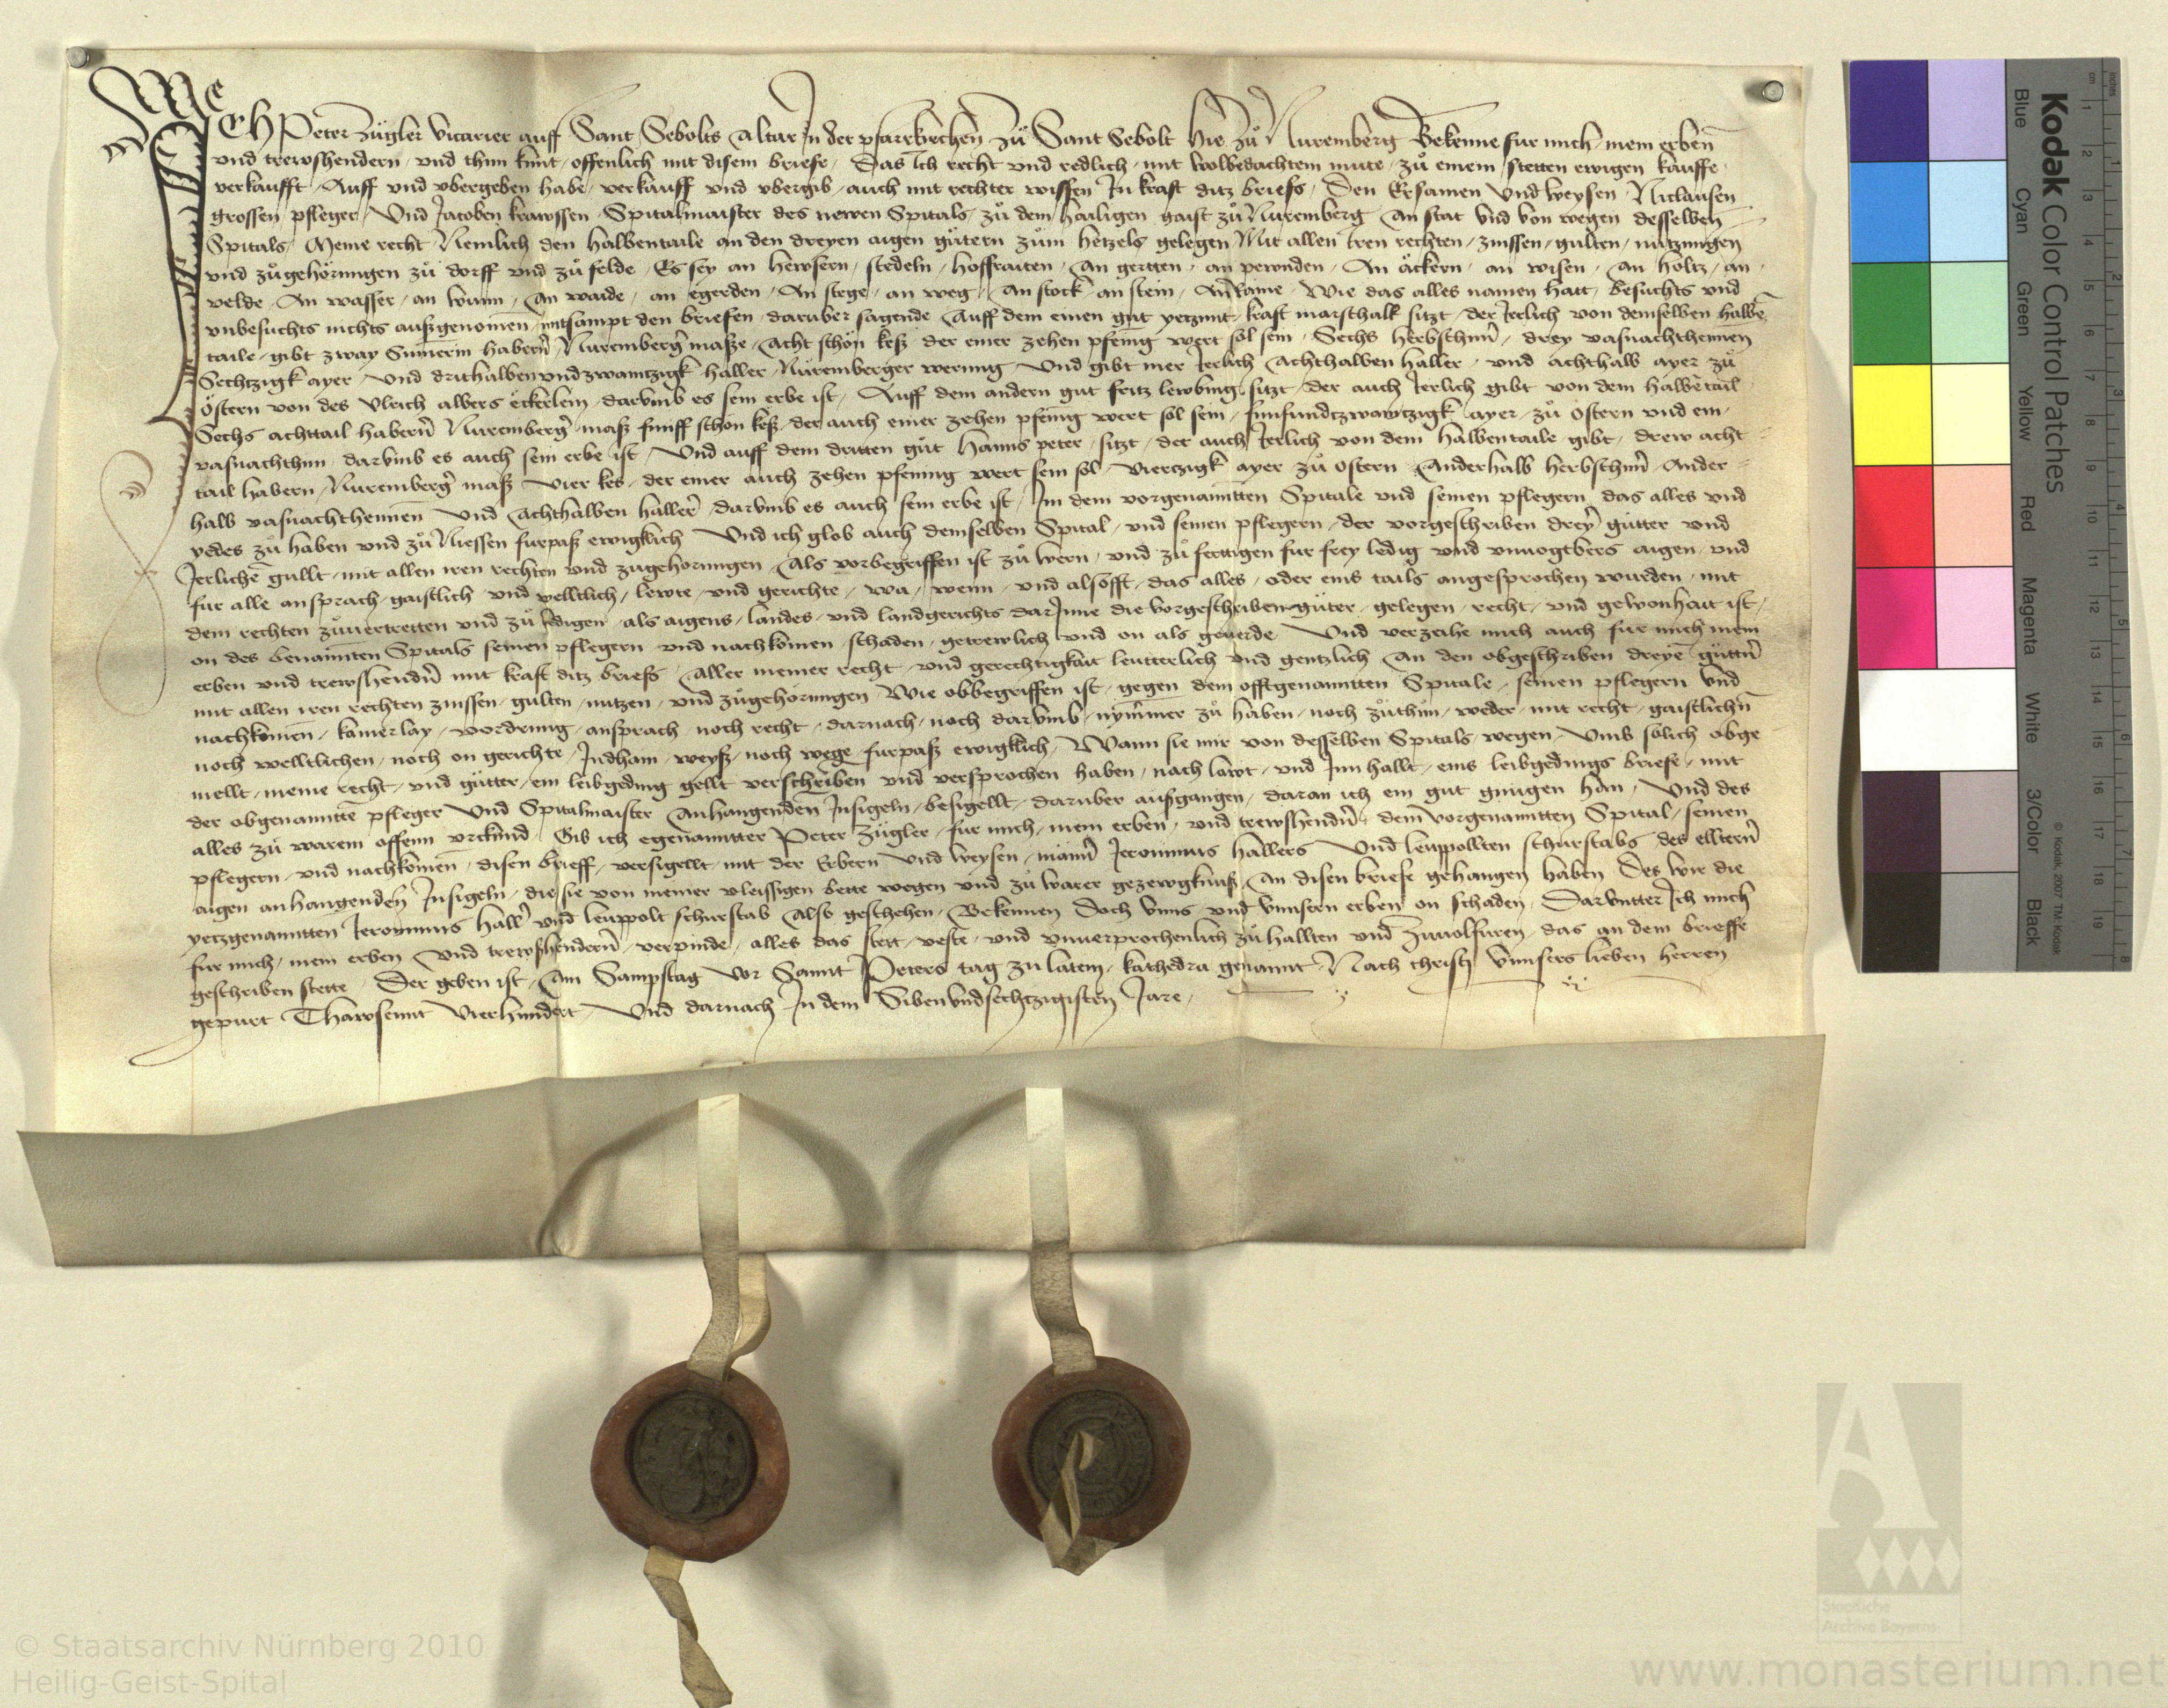 ICH Peter Zügler vicarier auff Sant Sebolts altar In der pfarrkirchen zů Sant Sebolt hie zů Nuremberg Bekenne fur mich mein erben
vnd trewshendern vnd thun kunt offenlich mit disem briefe Das Ich recht vnd redlich mit wolbedachtem mute zů einem stetten ewigen kauffe
verkaufft Auff vnd vbergeben habe verkauff vnd vbergib auch mit rechter wissen In kraft ditz briefs Den Ersamen vnd weysen Niclausen
grossen pfleger Vnd Jacoben krawssen Spitalmaister des newen Spitals zů dem hailigen gaist zů Nuremberg an stat vnd von wegen desselben
Spitals Meine recht Nemlich den halbentaile an den dreyen aigen gütern zům hetzels gelegen Mit allen iren rechten zinssen gulten nutzungen
vnd zůgehörungen zů dorff vnd zů felde Es sey an hewsern stedeln hoffraiten an gertten an pewnden An äckern an wisen an holtz an
velde An wasser an wunn an waide an egerden An stege an weg an stock an stein An rame Wie das alles namen hatt besuchts vnd
vnbesuchts nichts außgenomen mitsampt den briefen daruber sagende Auff dem einen gut yetzunt kraft marschalk sitzt der Ierlich von demselben halbē
taile gibt zway Sumerin habern̄ Nurembergr maße acht schön keß der einer zehen pfenig wert sol sein Sechs herbschun̄ drey vasnachthennen
Sechtzigk ayer Vnd drithalbenvndzwaintzigk haller Nüremberger werung Vnd gibt mer Ierlich achthalben haller vnd achthalb ayer zů
Östern von des Vlrich albers eckerlein darvmb es sein erbe ist Auff dem andern gut fritz lewbing sitzt der auch Ierlich gibt von dem halbētail
Sechs achttail habern̄ Nurembergr maß funff schön keß der auch einer zehen pfenig wert sol sein funfundtzwaintzigk ayer zů östern vnd ein
vasnachthun darvmb es auch sein erbe ist Vnd auff dem dritten gůt Hanns peter sitzt der auch Ierlich von dem halbentaile gibt drew acht
tail habern Nurembergr maß Vier kes der einer auch zehen pfening wert sein sol Viertzigk ayer zů östern Anderhalb herbschun̄ Ander
halb vasnachthennen Vnd Achthalben haller darvmb es auch sein erbe ist Im dem vorgenannten Spitale vnd seinen pflegern das alles vnd
yedes zů haben vnd zů Niessen furpaß ewigklich Vnd ich glob auch demselben Spital vnd seinen pflegern der vorgeschriben dreyr gütter vnd
Ierlichē gullt mit allen iren rechten vnd zugehorungen Als vorbegriffen ist zů wern vnd zů fertigen fur frey ledig vnd vnuogtbers aigen vnd
fur alle ansprach gaistlich vnd welltlich lewte vnd gerichte wa wenn vnd alsofft das alles oder eins tails angesprochen wurden mit
dem rechten zůuertretten vnd zů ledigen als aigens landes vnd landgerichts darInne die vorgeschriben güter gelegen recht vnd gewonhait ist
on des benannten Spitals seinen pflegern vnd nachkomen schaden getrewlich vnd on als geuerde Vnd verzeihe mich auch fur mich mein
erben vnd trewshendn̄ mit kraft ditz briefs Aller meiner recht vnd gerechtigkait leutterlich vnd gentzlich An den obgeschriben dreyē güttn̄
mit allen iren rechten zinssen gulten nutzen vnd zůgehorungen Wie obbegriffen ist gegen dem offtgenannten Spitale seinen pflegern vnd
nachkomen kainerlay vordrung ansprach noch recht darnach noch darvmb nymmer zů haben noch zůthůn weder mit recht gaistlichn̄
noch welltlichen noch on gerichte Indhain weyß noch wege furpaß ewigklich Wann sie mir von desselben Spitals wegen Vmb sölich obge
mellt meine recht vnd gütter ein leibgeding gellt verschriben vnd versprochen haben nach lawt vnd Inn hallt eins leibgedings briefe mit
der obgenannttē pfleger Vnd Spitalmaister Anhangenden Insigeln besigellt daruber außgangen daran ich ein gut gnügen han Vnd des
alles zů warem offenn vrckund Gib ich egenannter Peter Zügler fur mich mein erben vnd trewshendn̄ dem vorgenannten Spital seinen
pflegern vnd nachkomen disen brieff versigellt mit der Erbern Vnd weysen mann̄ Jeronimus hallers Vnd leuppollten schurstabs des elltern̄
aigen anhangenden Insigeln die sie von meiner vleissigen bette wegen vnd zů warer gezewgknuß An disen briefe gehangen haben Des wir die
yetzgenannten Jeronimus hallr vnd leuppolt schurstab Also geschehen Bekennen Doch vnns vnd vnnsern erben on schaden Darvntter Ich mich
fur mich mein erben Vnd trewshendern̄ verpinde alles das stett veste vnd vnuerprochenlich zů hallten vnd zuuolfuren das an dem brieffe
geschriben stette Der geben ist Am Sampstag Vor Sannt Peters tag zu latein kathedra genannt Nach christi vnnsers lieben herren
gepurt Thawsennt Vierhundert Vnd darnach In dem Sibenvndsechtzigisten Jare
Kodak Color Control Patches
Blue Cyan Green Yellow Red Magenta White 3/Color Black
© Kodak, 2007 TM: Kodak
© Staatsarchiv Nürnberg 2010
Heilig-Geist-Spital
Staatliche
Archive Bayerns
www.monasterium.net